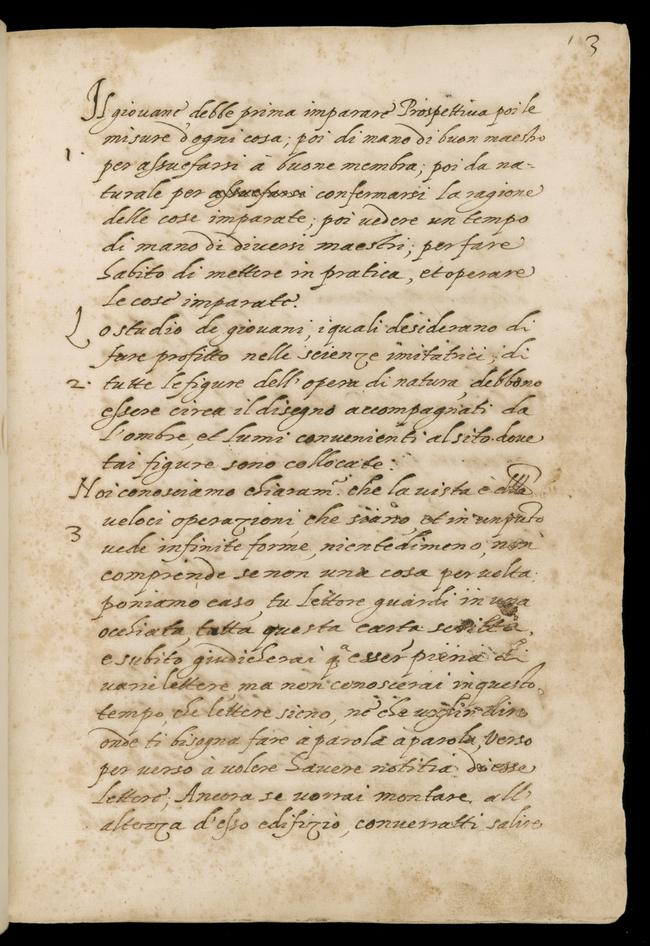 13
Il giovane debbe prima imparare Prospettiva poi le
misure d'ogni cosa; poi di mano di buon maestro
1.
per assuefarsi à buone membra; poi da na-
turale per assuefarsi confermarsi la ragione
delle cose imparate; poi vedere un tempo
di mano di diversi maestri; per fare
habito di mettere in pratica, et operare
le cose imparate.
Lo studio de giovani, i quali desiderano di
fare profitto nelle scienze imitatrici, di
2. tutte le figure dell'opera di natura, debbono
essere circa il disegno accompagnati da
l'ombre, et lumi convenienti al sito dove
tai figure sono collocate.
Noi conosciamo chiaram.te che la vista è
veloci operazioni, che siano, et in un punto
3 vede infinite forme, nientedimeno, non
comprende se non una cosa per volta.
poniamo caso, tu lettore guardi in una
occhiata tutta questa carta scritta,
e subito giudicherai q.a esser piena di
varie lettere, ma non conoscerai in questo
tempo, che lettere sieno, nè che
onde ti bisogna fare à parola à parola, verso
per verso à volere havere notitia di esse
lettere; Ancora se vorrai montare all'
altezza d'esso edifizio, converratti salire